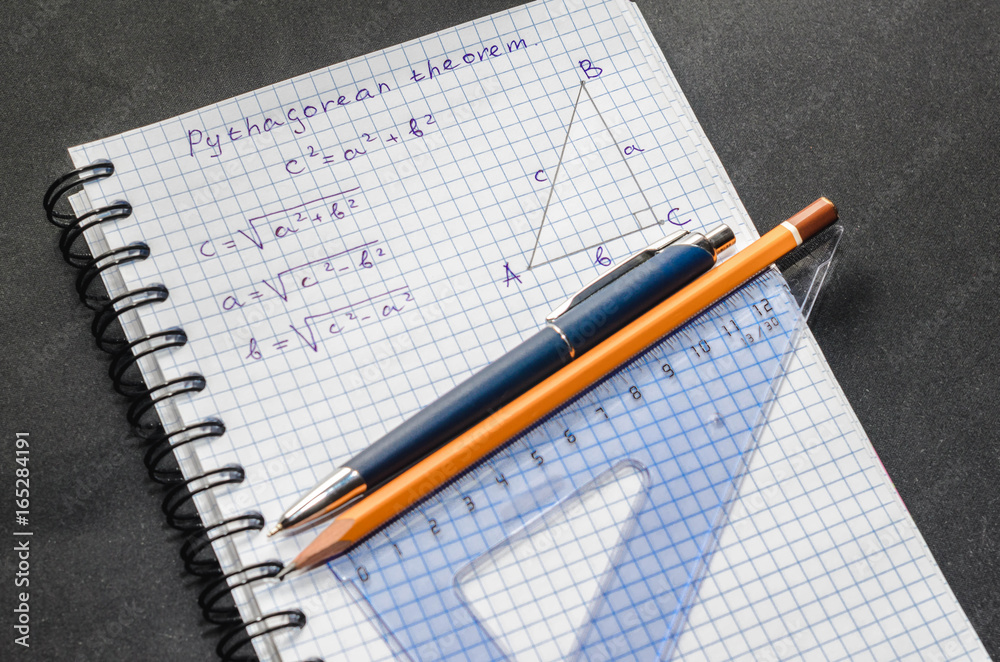 Pythagorean theorem.
c² = a² + b²
c = √(a² + b²)
a = √(c² - b²)
b = √(c² - a²)
B
c
a
C
b
A
0 1 2 3 4 5 6 7 8 9 10 11 12
13/30
Adobe Stock | #165284191